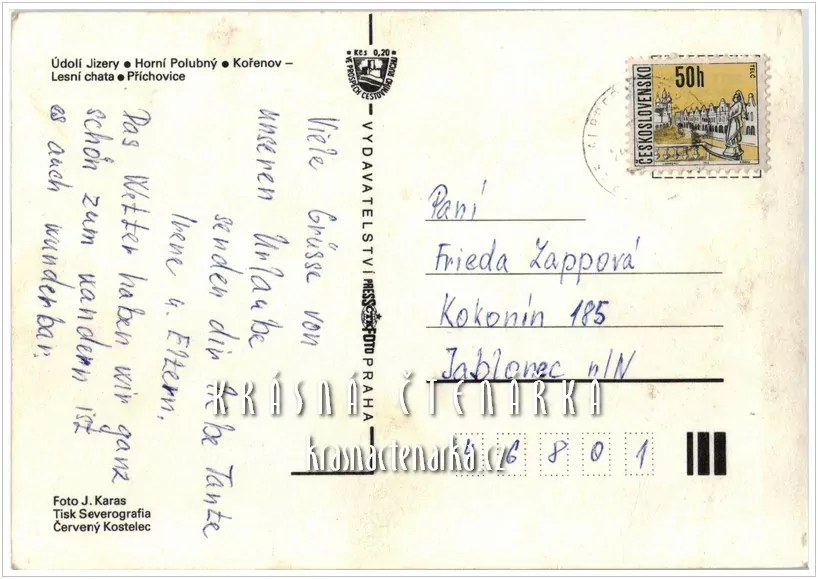 Údolí Jizery ● Horní Polubný ● Kořenov –
Lesní chata ● Příchovice
Kčs 0,20
VE PROSPĚCH CESTOVNÍHO RUCHU
Viele Grüsse von
unseren Urlaube
senden dir liebe Tante
Irene u. Eltern.
Das Wetter haben wir ganz
schön zum wandern ist
es auch wunderbar.
VYDAVATELSTVÍ PRESSFOTO PRAHA
ČESKOSLOVENSKO
50h
TELČ
Paní
Frieda Zappová
Kokonín 185
Jablonec n/N
46801
KRÁSNÁ ČTENÁŘKA
krasnactenarka.cz
Foto J. Karas
Tisk Severografia
Červený Kostelec